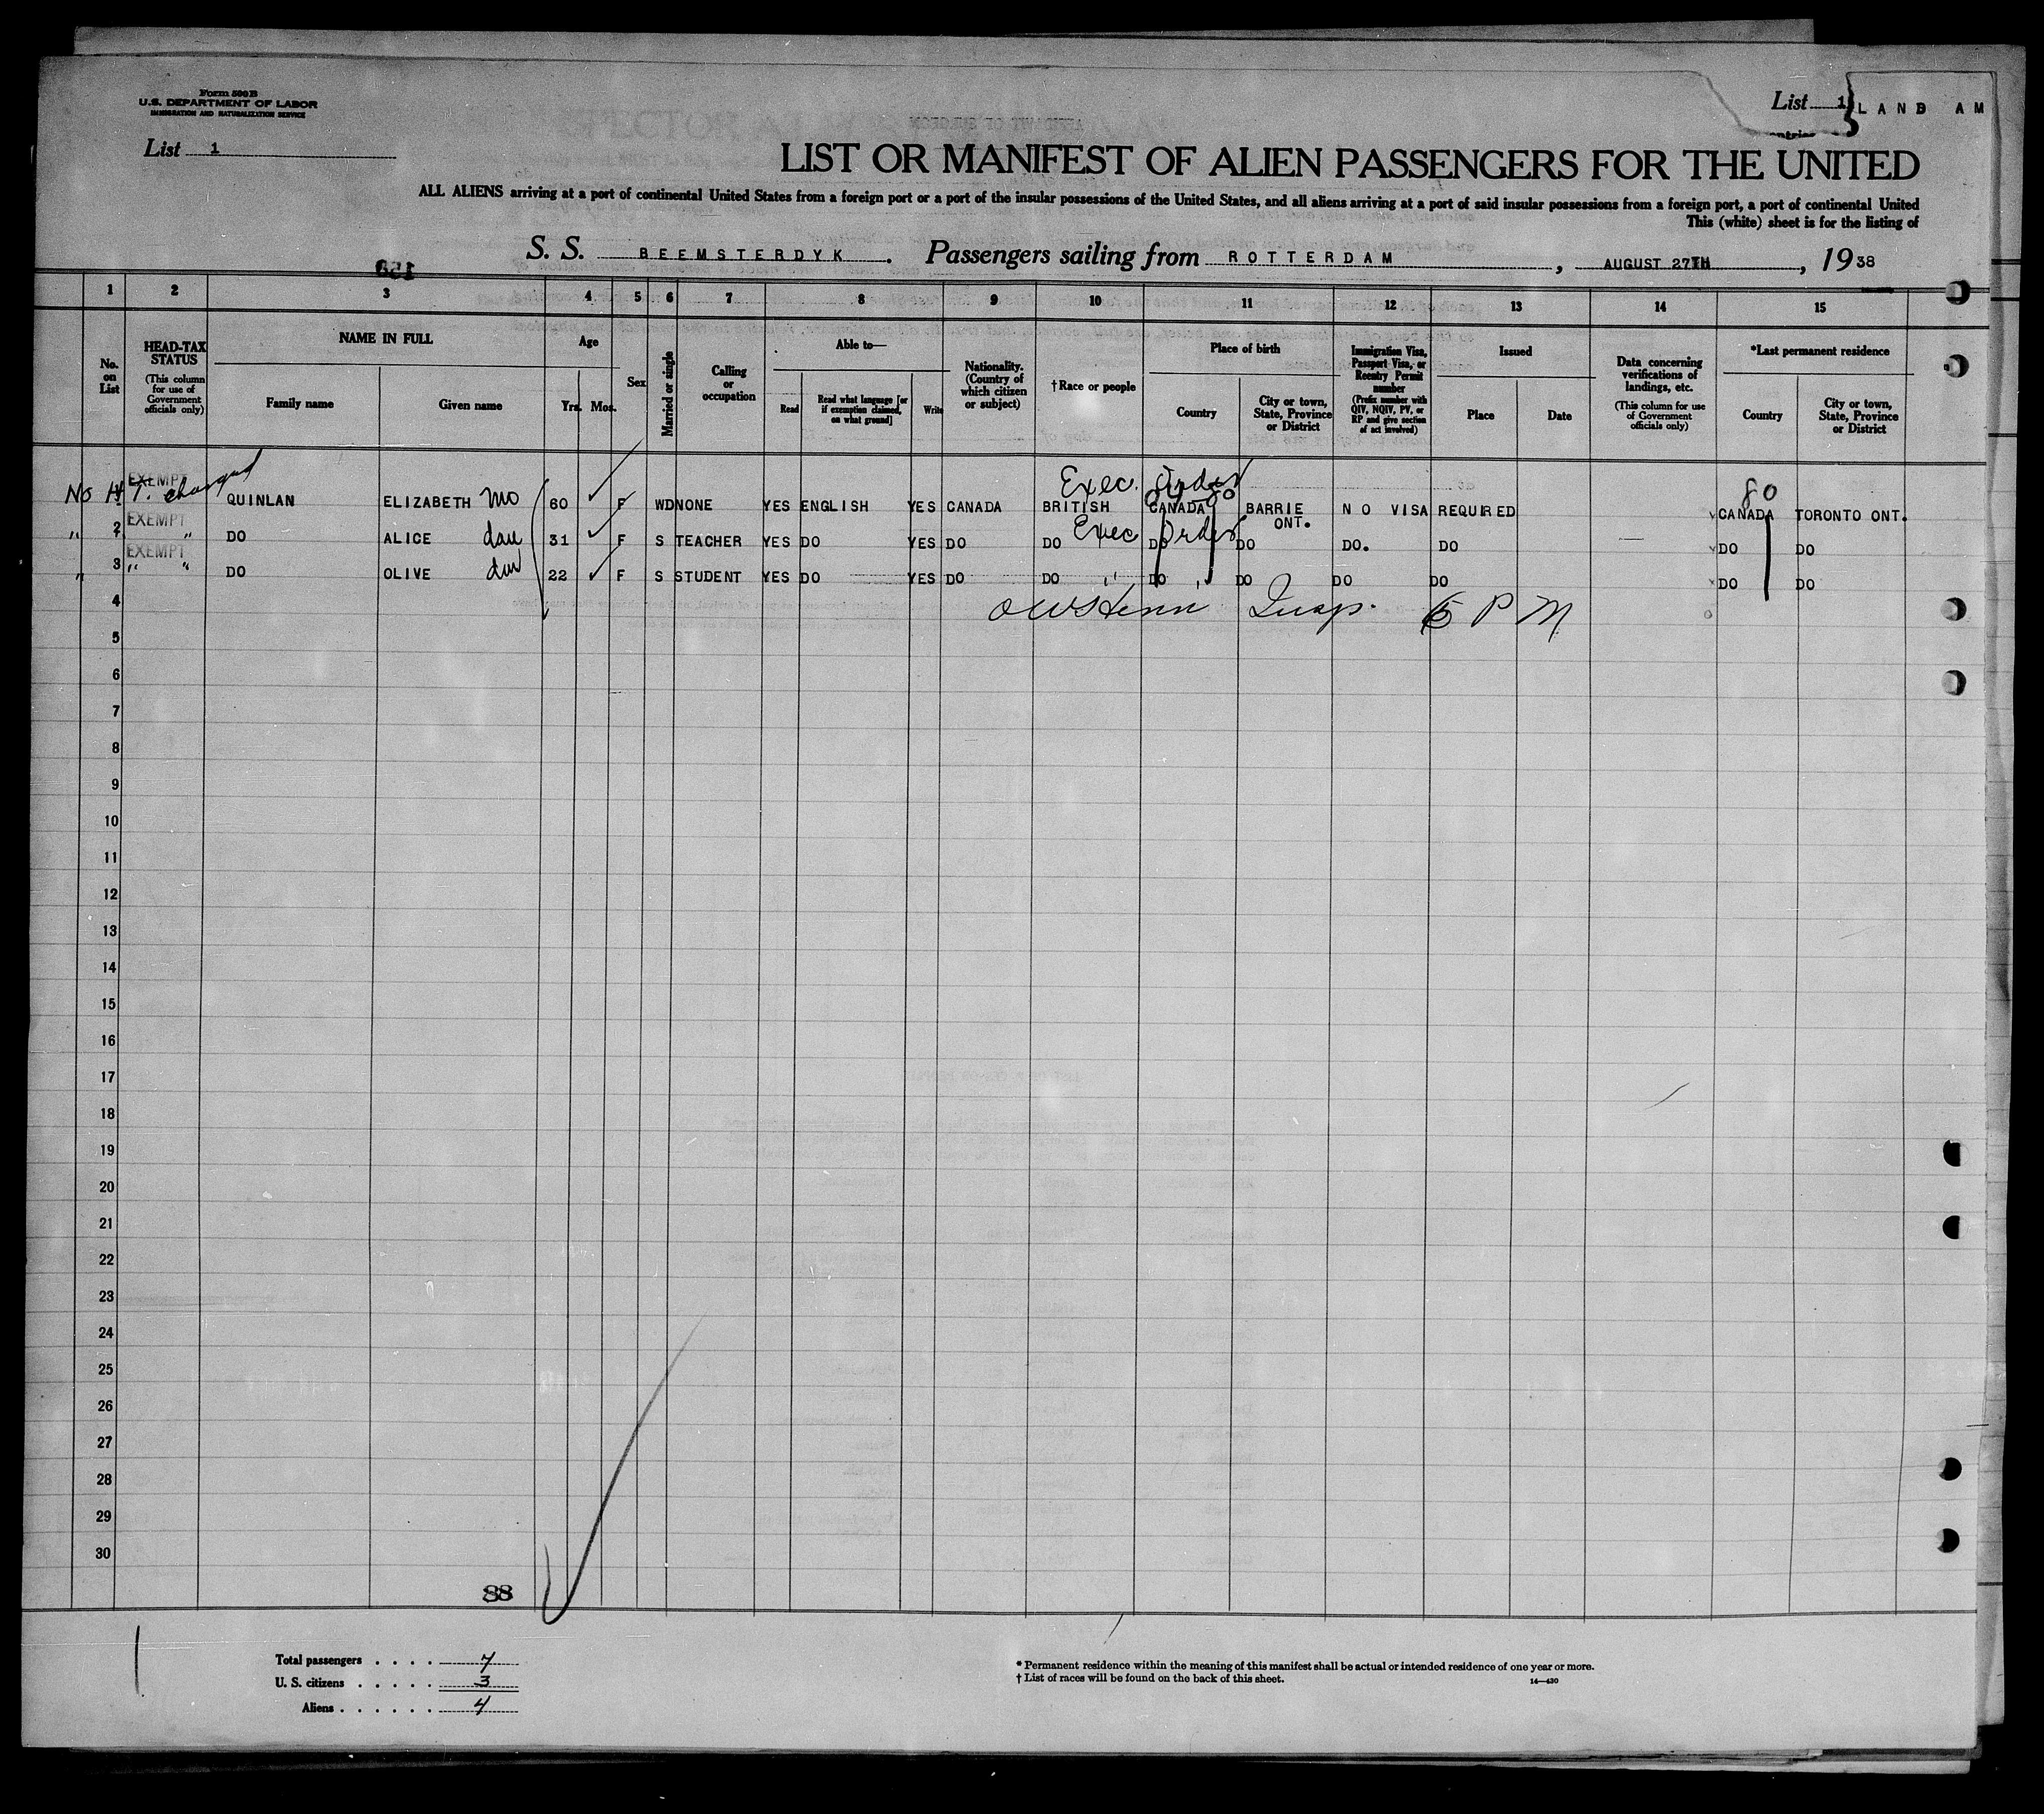 Form 500 B
U.S. DEPARTMENT OF LABOR
IMMIGRATION AND NATURALIZATION SERVICE
List 1
List 1
LAND AM
LIST OR MANIFEST OF ALIEN PASSENGERS FOR THE UNITED
ALL ALIENS arriving at a port of continental United States from a foreign port or a port of the insular possessions of the United States, and all aliens arriving at a port of said insular possessions from a foreign port, a port of continental United
This (white) sheet is for the listing of
S. S. BEEMSTERDYK. Passengers sailing from ROTTERDAM, AUGUST 27TH, 1938
1 2 3 4 5 6 7 8 9 10 11 12 13 14 15
No. on List
HEAD-TAX STATUS
(This column for use of Government officials only)
NAME IN FULL
Family name
Given name
Age
Yrs. Mos.
Sex
Married or single
Calling or occupation
Able to—
Read
Read what language [or if exemption claimed, on what ground]
Write
Nationality. (Country of which citizen or subject)
†Race or people
Place of birth
Country
City or town, State, Province or District
Immigration Visa, Passport Visa, or Reentry Permit number
(Prefix number with QIV, NQIV, PV, or RP and give section of act involved)
Issued
Place
Date
Data concerning verifications of landings, etc.
(This column for use of Government officials only)
*Last permanent residence
Country
City or town, State, Province or District
EXEMPT Exec. Order 80
No H T. charged QUINLAN ELIZABETH mo 60 F WD NONE YES ENGLISH YES CANADA BRITISH CANADA BARRIE ONT. NO VISA REQUIRED CANADA TORONTO ONT.
EXEMPT Exec Order
2 " " DO ALICE dau 31 F S TEACHER YES DO YES DO DO DO DO DO. DO DO DO
EXEMPT
3 " " " DO OLIVE dau 22 F S STUDENT YES DO YES DO DO " DO " DO DO DO DO DO
4 Insp. P M
5
6
7
8
9
10
11
12
13
14
15
16
17
18
19
20
21
22
23
24
25
26
27
28
29
30
88
Total passengers . . . . 7
U. S. citizens . . . . . 3
Aliens . . . . . . 4
* Permanent residence within the meaning of this manifest shall be actual or intended residence of one year or more.
† List of races will be found on the back of this sheet.
14—430